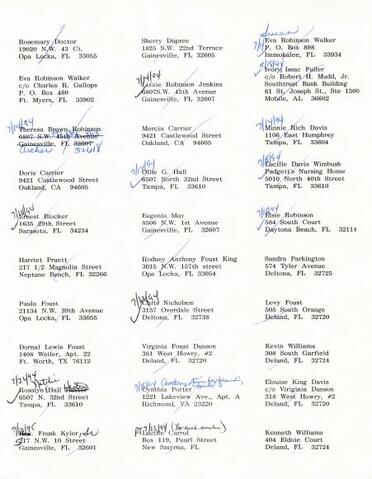 Rosemary Doctor
19020 N.W. 43 Ct.
Opa Locka, FL 33055
Sherry Dupree
1825 S.W. 22nd Terrace
Gainesville, FL 32605
Eva Robinson Walker
P. O. Box 898
Immokalee, FL 33934
Eva Robinson Walker
c/o Charles R. Gallops
P. O. Box 480
Ft. Myers, FL 33902
Lizzie Robinson Jenkins
6807 S.W. 45th Avenue
Gainesville, FL 32607
Ivory Issac Fuller
c/o Robert H. Mudd, Jr.
Southtrust Bank Building
61 St. Joseph St., Ste 1500
Mobile, AL 36602
7/14/94
Theresa Brown Robinson
6807 S.W. 45th Avenue
Gainesville, FL 32607
Archer 32618
Mercia Carrier
9421 Castlewood Street
Oakland, CA 94605
7/14/94
Minnie Rich Davis
1106 East Humphrey
Tampa, FL 33604
Doris Carrier
9421 Castlewood Street
Oakland, CA 94605
Ollie G. Hall
6507 North 32nd Street
Tampa, FL 33610
Lucille Davis Wimbush
Padgett's Nursing Home
5010 North 40th Street
Tampa, FL 33610
Ernest Blocker
1635 29th Street
Sarasota, FL 34234
Eugenia May
8506 N.W. 1st Avenue
Gainesville, FL 32607
Elsie Robinson
584 South Court
Daytona Beach, FL 32114
Harriet Pruett
217 1/2 Magnolia Street
Neptune Beach, FL 32266
Rodney Anthony Foust King
3015 N.W. 157th street
Opa Locka, FL 33054
Sandra Parkington
574 Tyler Avenue
Deltona, FL 32725
Paula Foust
21134 N.W. 39th Avenue
Opa Locka, FL 33055
Chris Nicholson
3157 Overdale Street
Deltona, FL 32738
Levy Foust
505 South Orange
Deland, FL 32720
Dornal Lewis Foust
1408 Weiler, Apt. 22
Ft. Worth, TX 76112
Virginia Foust Dunson
381 West Howry, #2
Deland, FL 32720
Kevin Williams
308 South Garfield
Deland, FL 32724
7/24/94
Rosalyn Hall
6507 N. 32nd Street
Tampa, FL 33610
Cynthia Porter
1221 Lakeview Ave., Apt. A
Richmond, VA 23220
Elouise King Davis
c/o Virginia Dunson
318 West Howry, #2
Deland, FL 32720
Frank Kyler, Sr
217 N.W. 10 Street
Gainesville, FL 32601
Lucille Carrol
Box 119, Pearl Street
New Smyrna, FL
Kenneth Williams
404 Eldoie Court
Deland, FL 32724